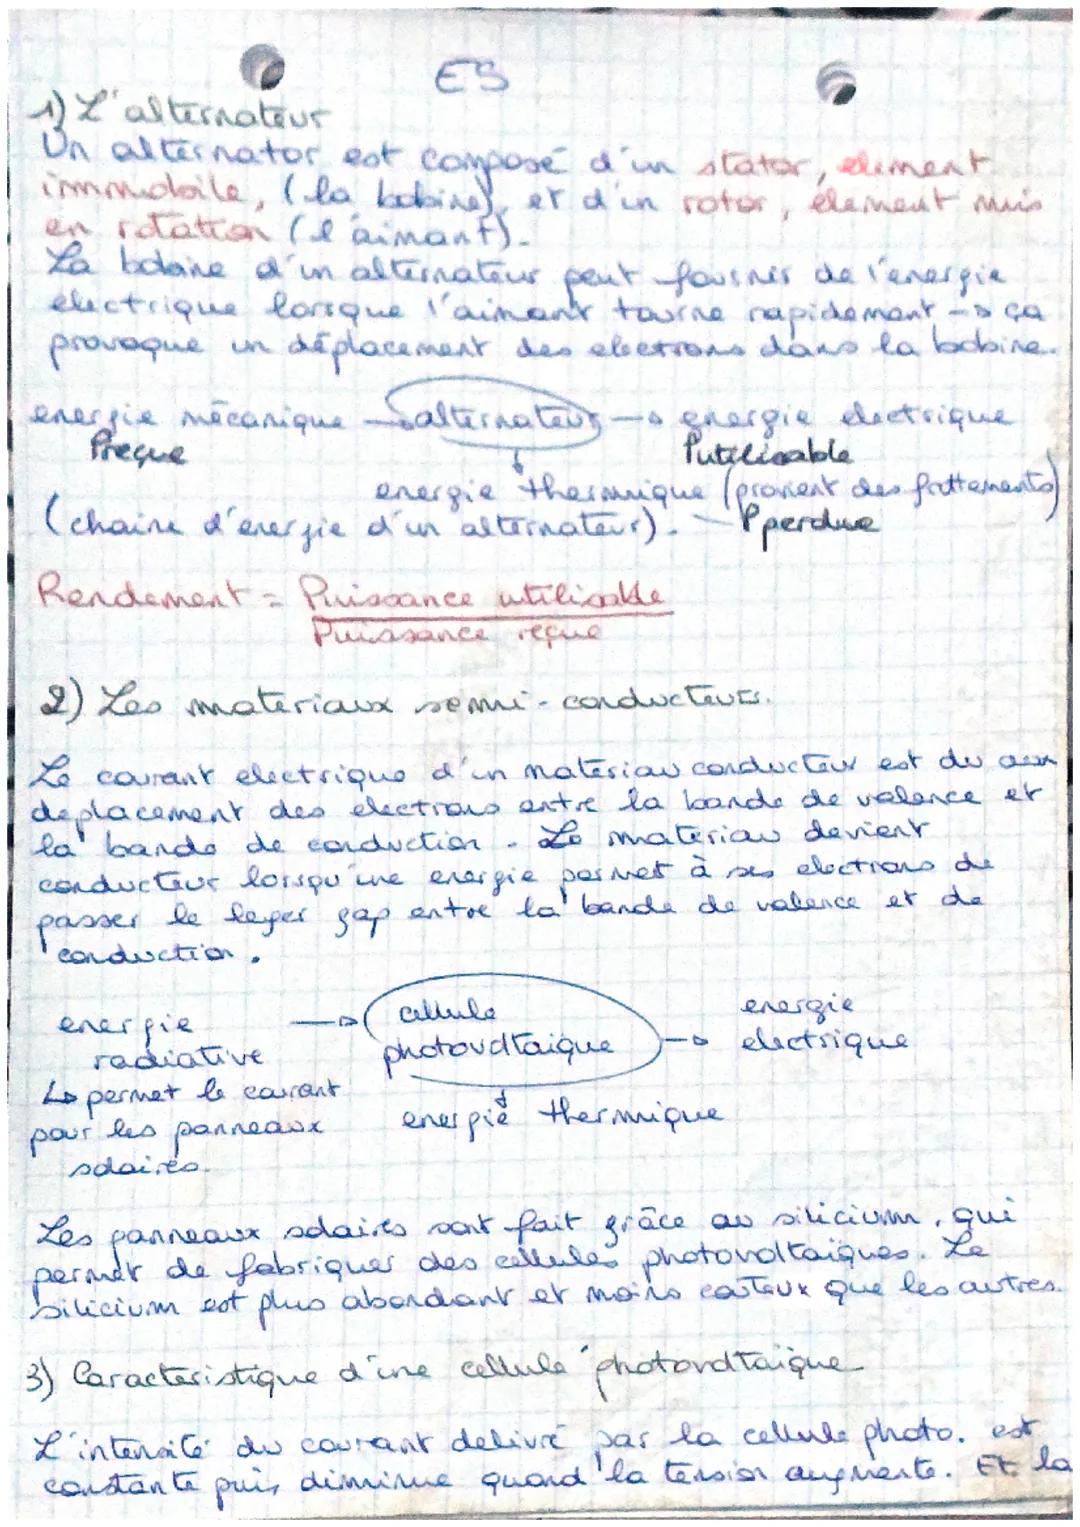 ES
1) L'alternateur
Un alternator est composé d'un stator, element
immobile, (la bobine), et d'un rotor, élement mis
en rotation (l'aimant).
La bobine d'un alternateur peut fournir de l'energie
electrique lorsque l'aimant tourne rapidement → ça
provoque un déplacement des electrons dans la bobine.
energie mécanique → alternateur → energie electrique
Preçue Putilisable
energie thermique (provient des frottements)
(chaine d'énergie d'un alternateur). - Pperdue
Rendement = Puissance utilisable
Puissance reçue
2) Les materiaux semi-conducteurs.
Le courant electrique d'un materiau conducteur est du aux
deplacement des electrons entre la bande de valence et
la bande de conduction. Le materiau devient
conducteur lorsqu'une energie permet à ses electrons de
passer le leger gap entre la bande de valence et de
conduction.
energie → cellule → energie
radiative photovoltaïque electrique
↳ permet le courant
pour les panneaux energie thermique
solaires.
Les panneaux solaires sont fait grâce au silicium, qui
permet de fabriquer des cellules photovoltaïques. Le
silicium est plus abondant et moins couteux que les autres.
3) Caracteristique d'une cellule photovoltaïque
L'intensité du courant delivré par la cellule photo. est
constante puis diminue quand la tension augmente. Et la